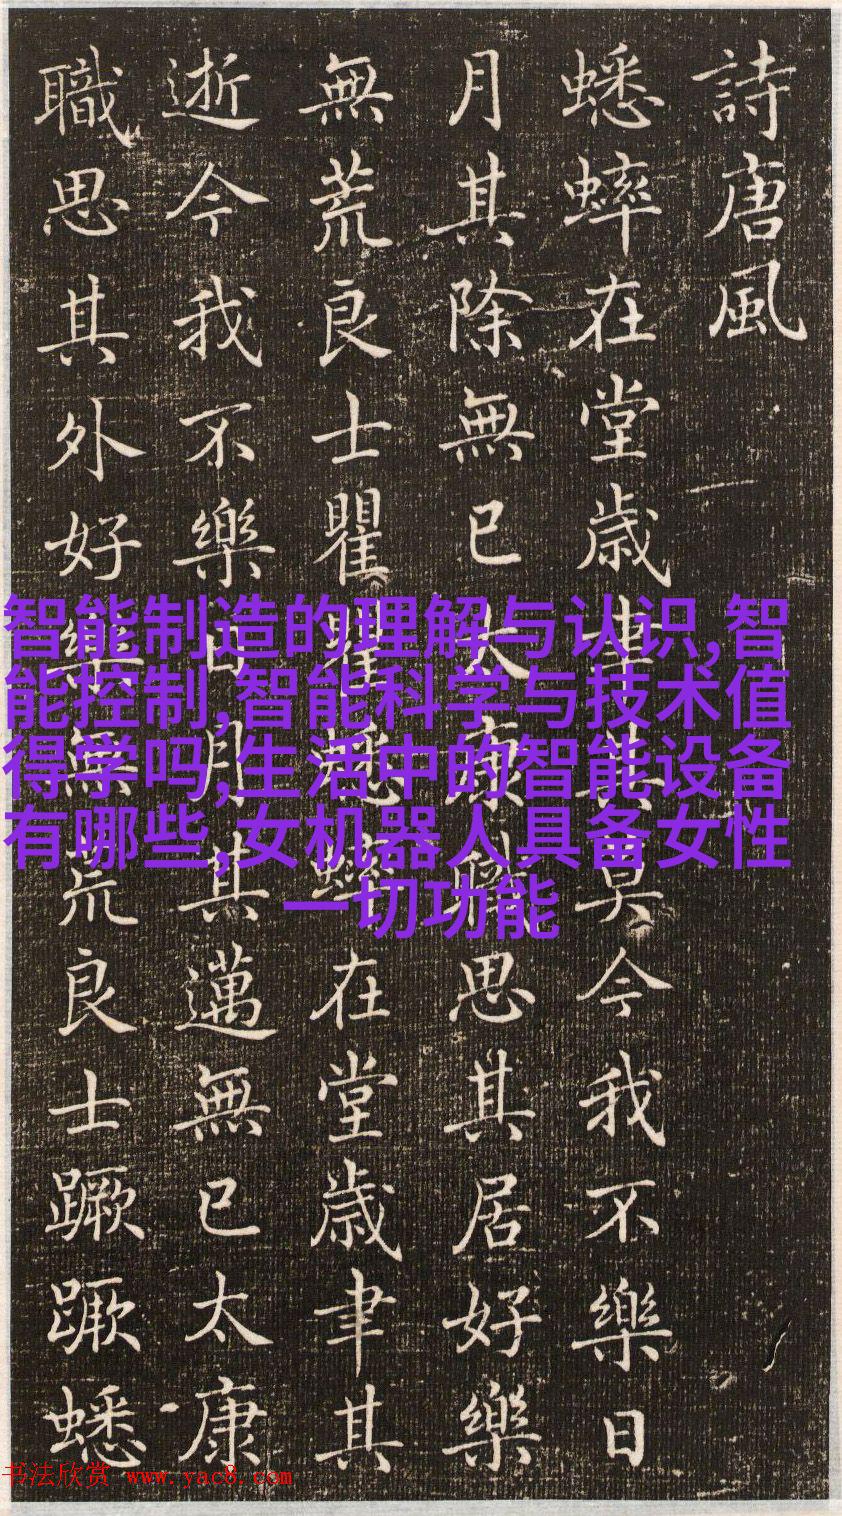 詩唐風
蟋蟀在堂歳聿其莫今我不樂日
月其除無已大康職思其居好樂
無荒良士瞿瞿蟋蟀在堂歳聿其
逝今我不樂日月其邁無已太康
職思其外好樂無荒良士蹶蹶蟋
智能制造的理解与认识,智
能控制,智能科学与技术值
得学吗,生活中的智能设备
有哪些,女机器人具备女性
一切功能
书法欣赏 www.yac8.com